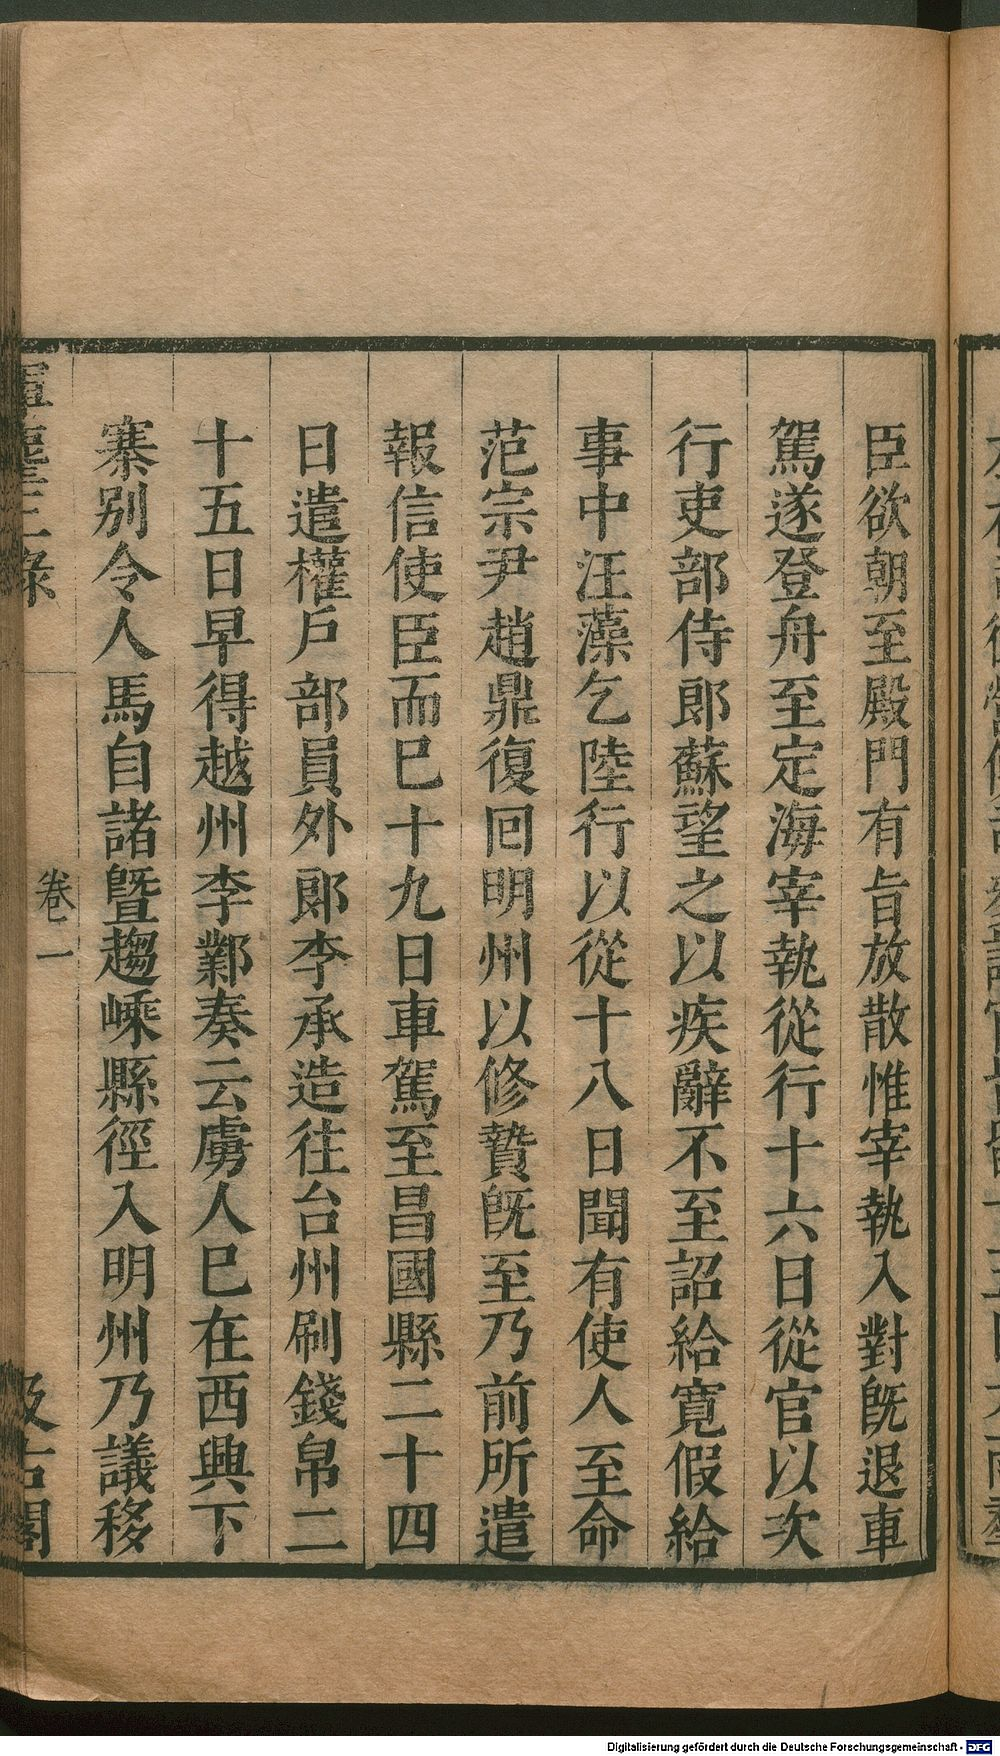 臣欲朝至殿門有旨放散惟宰執入對旣退車
駕遂登舟至定海宰執從行十六日從官以次
行吏部侍郎蘇望之以疾辭不至詔給寛假給
事中汪藻乞陸行以從十八日聞有使人至命
范宗尹趙鼎復回明州以修贄旣至乃前所遣
報信使臣而巳十九日車駕至昌國縣二十四
日遣權戶部員外郎李承造往台州刷錢帛二
十五日早得越州李鄴奏云虜人巳在西興下
寨别令人馬自諸曁趨嵊縣徑入明州乃議移
卷一
Digitalisierung gefördert durch die Deutsche Forschungsgemeinschaft - DFG